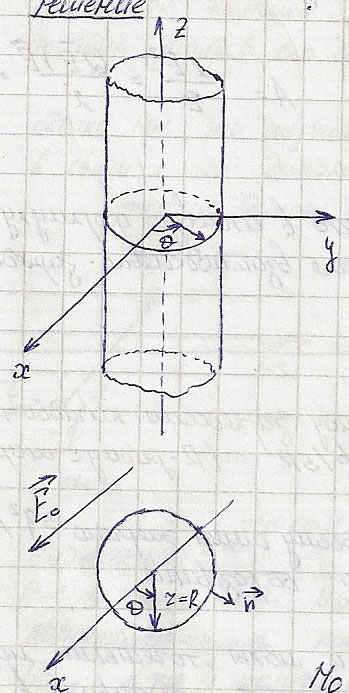 Решение
z
θ
y
x
E₀
θ
r=R
n
x
Мо